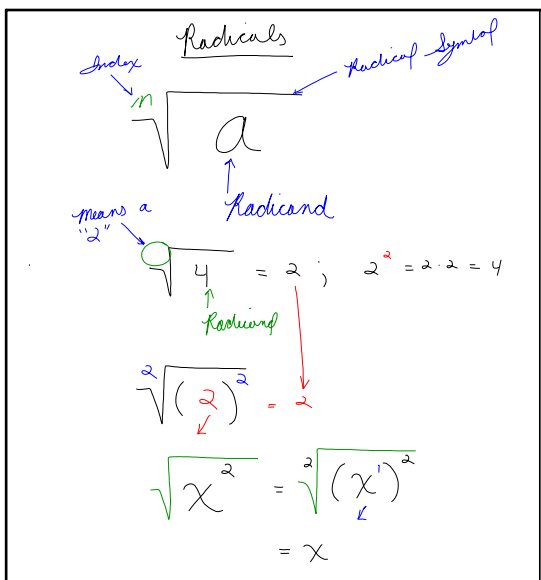 Radicals
Index
Radical Symbol
n√a
Radicand
Means a "2"
√4 = 2 ; 2² = 2·2 = 4
Radicand
²√(2)² = 2
√x² = ²√(x¹)²
= x